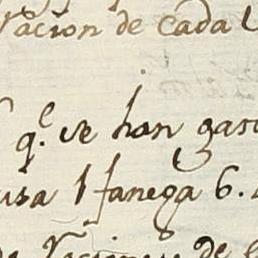 racion de cada
q.e se han gas
usa 1 fanega 6.
Raciones de